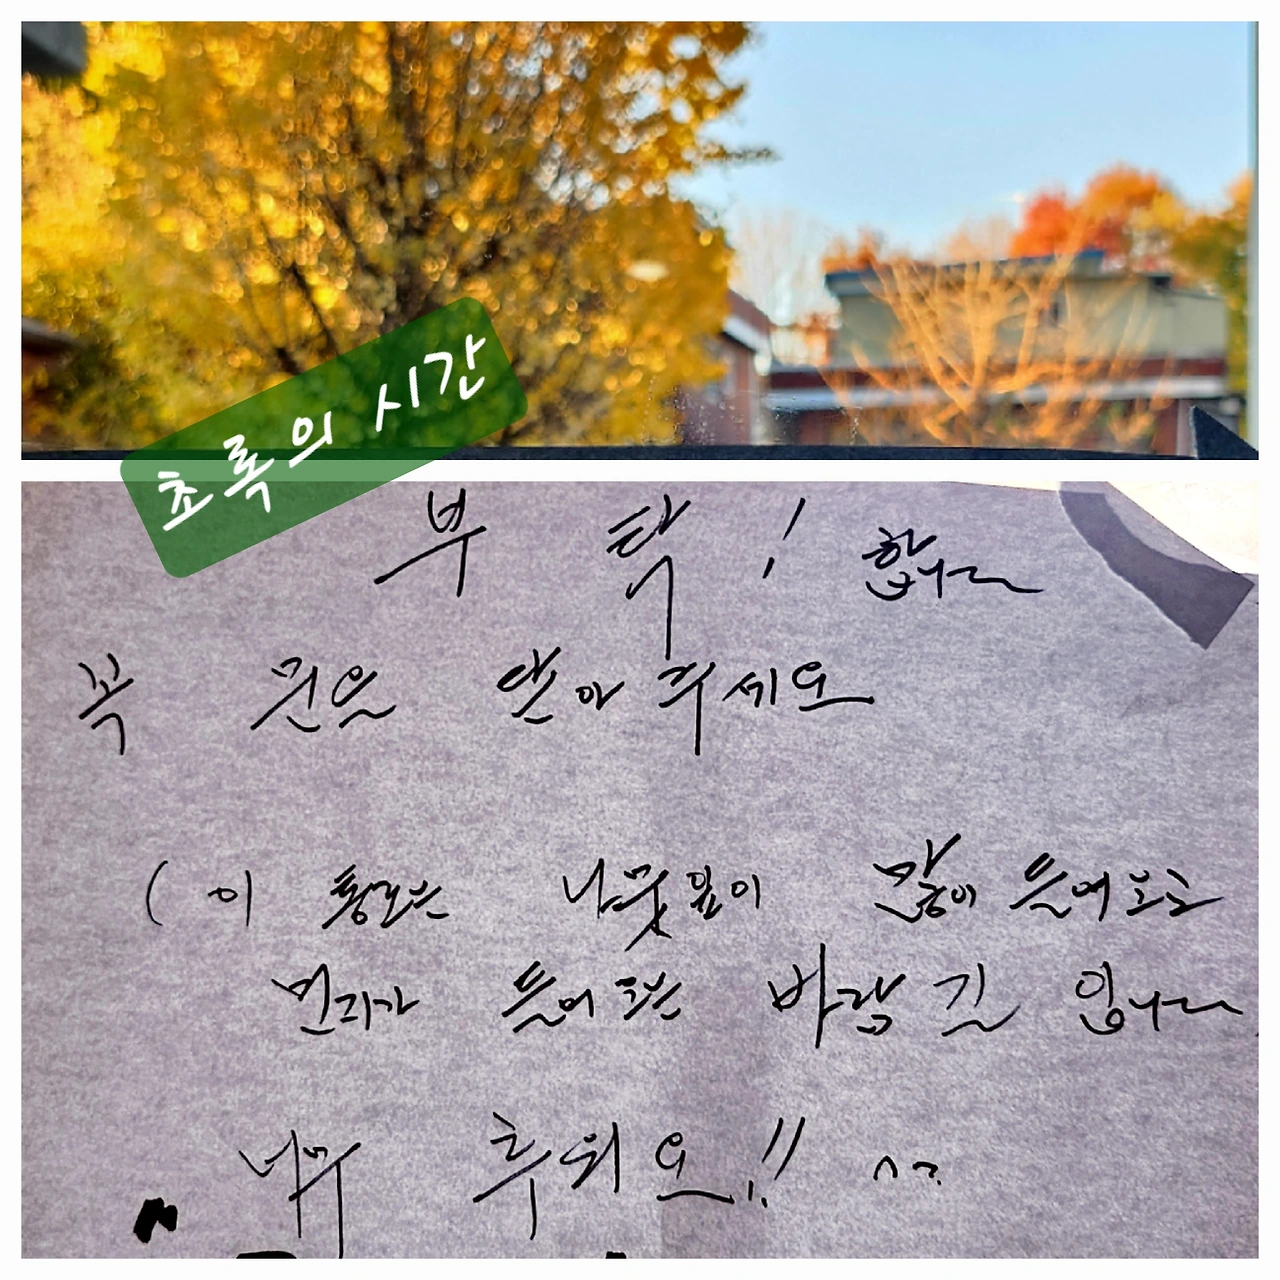 초록의 시간
부 탁 ! 합니다
꼭 문은 닫아 주세요
( 이 통로는 나뭇잎이 많이 들어오고
먼지가 들어오는 바람길 입니다
너무 추워요!! ^^